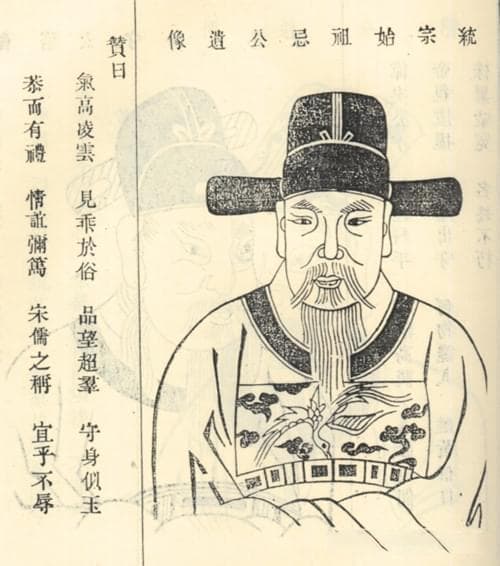 統宗始祖忌公遺像
贊曰
氣高凌雲 見乖於俗 品望超羣 守身似玉
恭而有禮 情誼彌篤 宋儒之稱 宜乎不辱